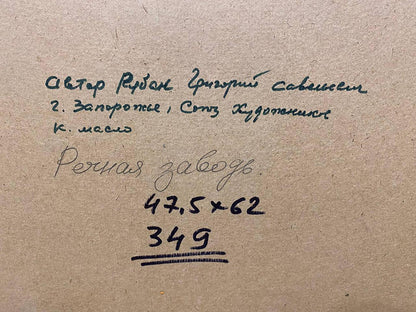 автор Рубан Григорий Савельеви
г. Запорожье, Союз Художнике
к. масло
Речная заводь.
47,5 x 62
349